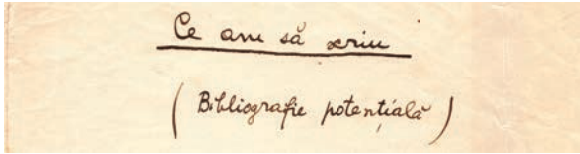 Ce am să scriu
(Bibliografie potențială)